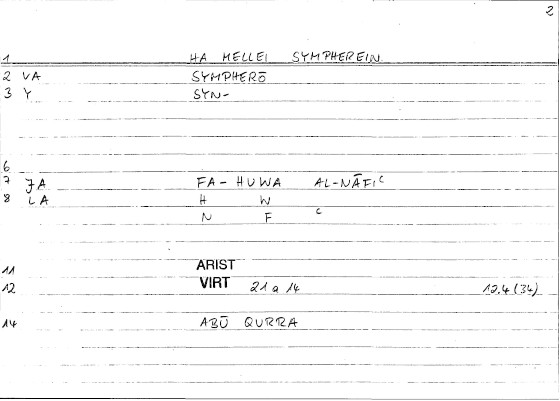 2
1 HA MELLEI SYMPHEREIN
2 VA SYMPHERŌ
3 Y SYN-
6
7 JA FA-HUWA AL-NĀFIᶜ
8 LA H W
N F ᶜ
11 ARIST
12 VIRT 21 a 14 12.4 (34)
14 ABŪ QURRA